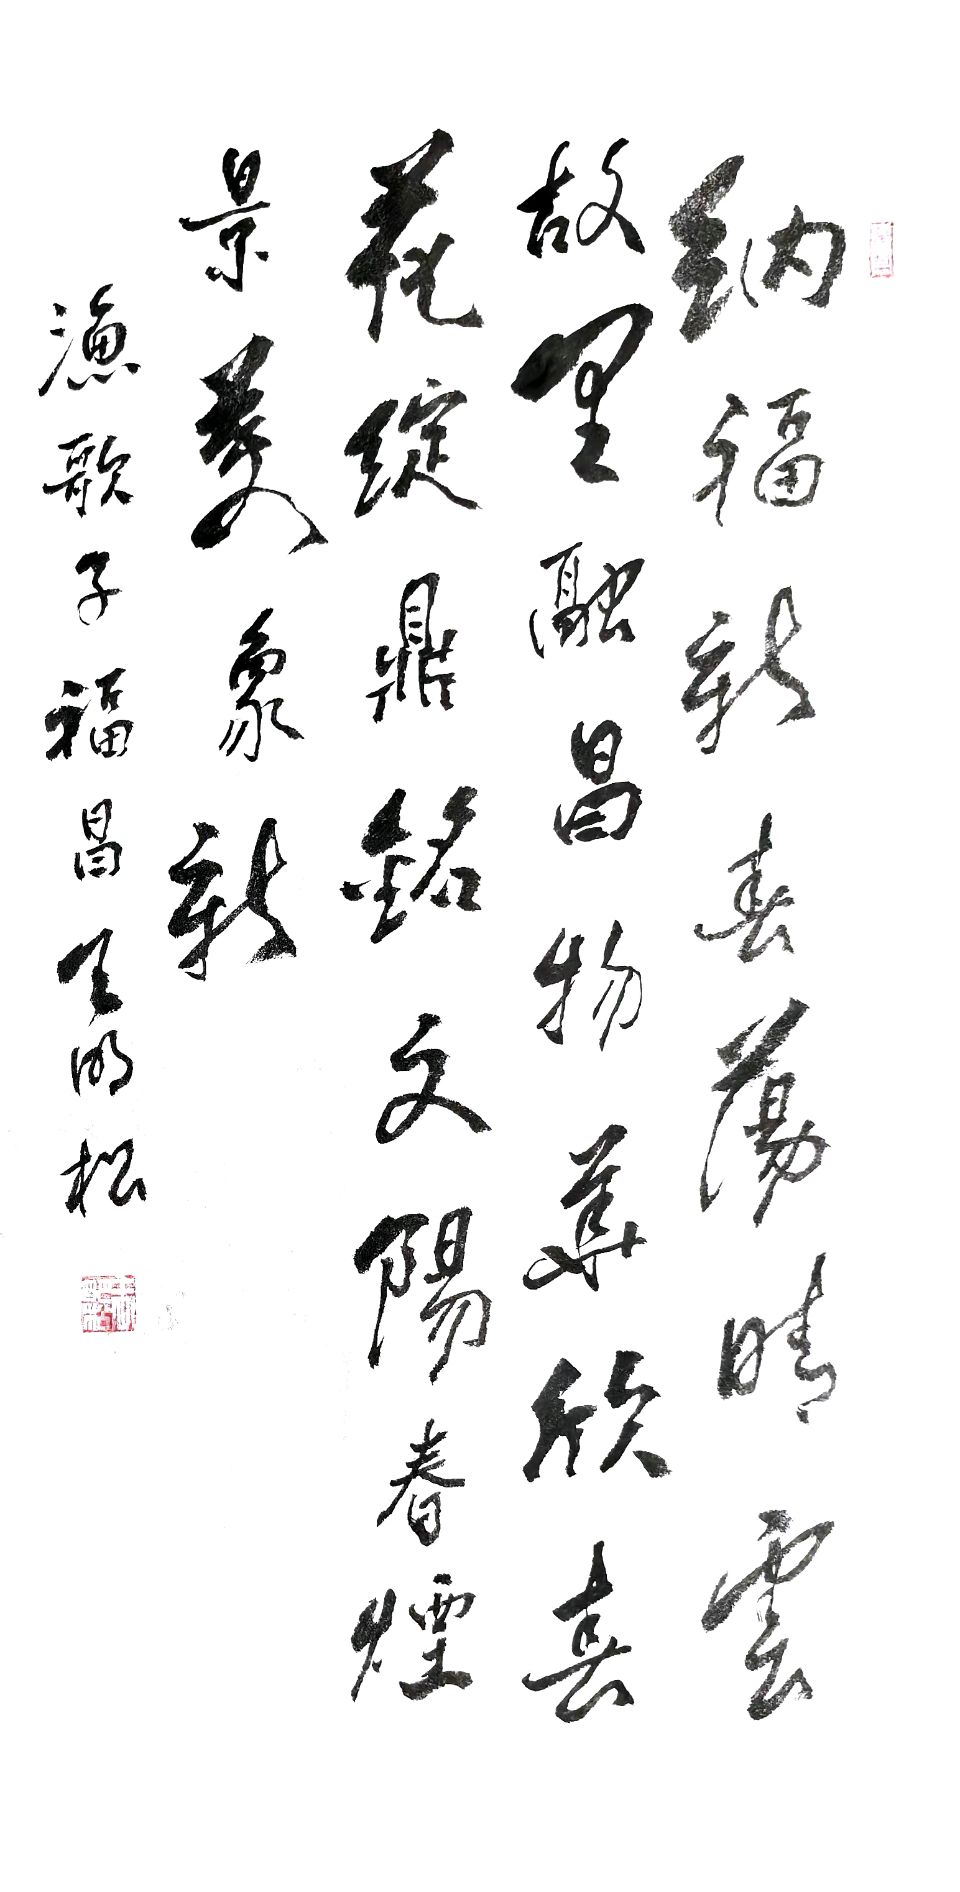 納福新春蕩晴雲
故里融昌物華欣喜
花綻鼎銘文陽春煙
景萬象新
漁歌子福昌王明松